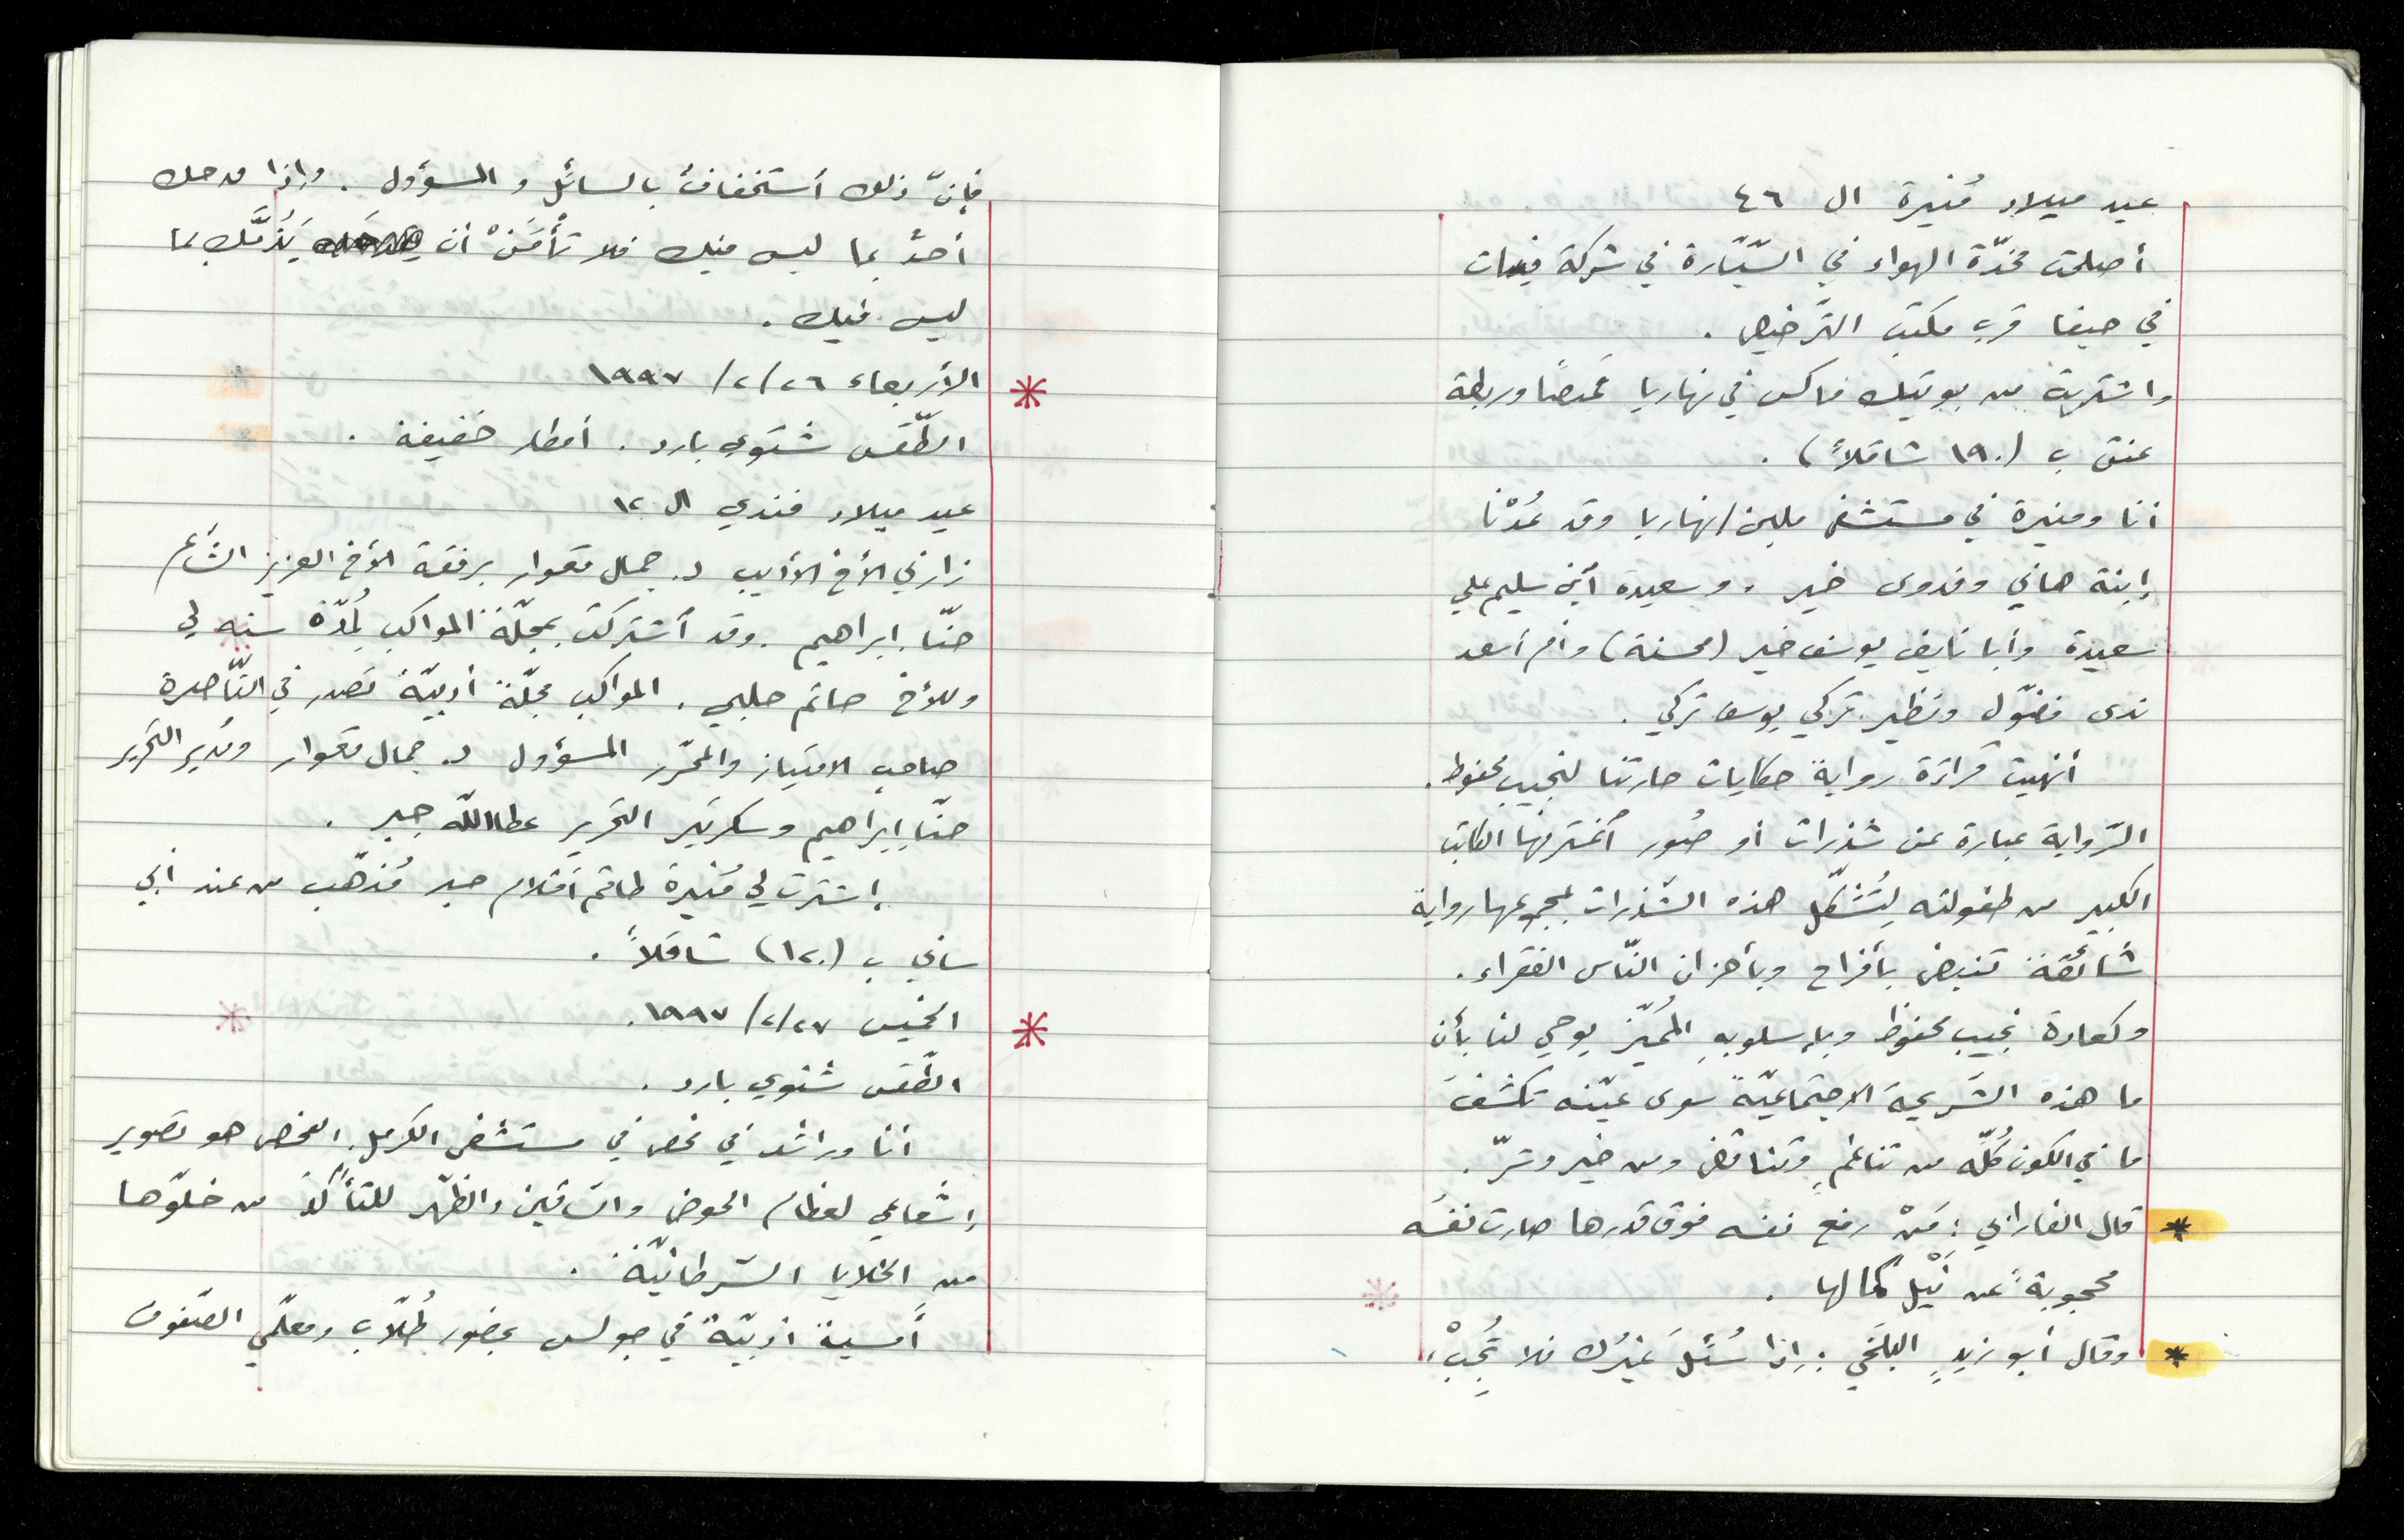 عيد ميلاد مُنيرة ال ٤٦
أصلحت مخدّة الهواء في السّيّارة في شركة فيات
في حيفا قرب مكتب التّرخيص .
واشتريت من بوتيك ماكس في نهاريا قمصًا وربطة
عنق ب (١٩٠ شاقلاً) .
أنا ومنيرة في مستشفى ملبن/نهاريا وقد عُدْنا
إبنة هاني وفدوى خير . وسعيدة أبن سليم علي
سعيدة وأبا نايف يوسف خير (محسنة) وأم أسعد
ندى فضّول ونظير تركي يوسف تركي .
أنهيت قراءة رواية حكايات حارتنا لنجيب محفوظ .
الرّواية عبارة عن شذرات أو صُور أغترفها الكاتب
الكبير من طفولته لِتُشكّل هذه الشّذرات بمجموعها رواية
شائقة تنبض بأفراح وبأحزان النّاس الفقراء .
وكعادة نجيب محفوظ وبإسلوبهِ المُميّز يوحي لنا بأن
ما هذه الشّريحة الاجتماعيّة سوى عيّنه تكشف
ما في الكون كُلّه من تناغمٍ وتناقض ومن خير وشرّ .
* قال الفارابي : مَنْ رفع نفسه فوق قدرها صارت نفسُه
محجوبةً عن نَيْلِ كمالها .
* وقال أبو زيدٍ البلَخي : إذا سُئلَ غيرُك فلا تُجِبْ ،
فإنّ ذلك أستخفافٌ بالسائل و المسؤول . وإذا مدحك
أحدٌ بما ليس فيك فلا تأْمَنْ أن يَذُمَّك بما
ليس فيك .
* الأربعاء ٢٦/٢/ ١٩٩٧
الطّقس شتوي بارد . أمطار خفيفة .
عيد ميلاد فندي ال ١٢
زارني الأخ الأديب د. جمال قعوار برفقة الأخ العزيز الشّاعر
حنّا إبراهيم . وقد أشتركت بمجلّة المواكب لمُدّة سنه لي
وللأخ حاتم حلبي . المواكب مجلّة أدبيّة تصدر في النّاصرة
صاحب الامتياز والمحرّر المسؤول د. جمال قعوار ومُدير التحرير
حنّا إبراهيم وسكرتير التحرير عطاالله جبر .
إشترت لي مُنيرة طاقم أقلام حبر مُذهّب من عند أبي
ساني ب (١٢٠) شاقلاً .
* الخميس ٢٧/٢/ ١٩٩٧.
الطّقس شتوي بارد .
أنا وراشد في فحص في مستشفى الكرمل. الفحص هو تصوير
إشعاعي لعظام الحوض والسّاقين والظّهر للتأكّد من خلوّها
من الخلايا السّرطانيّة .
أُمسية أدبيّة في جولس بحضور طُلّاب ومعلّمي الصّفوف